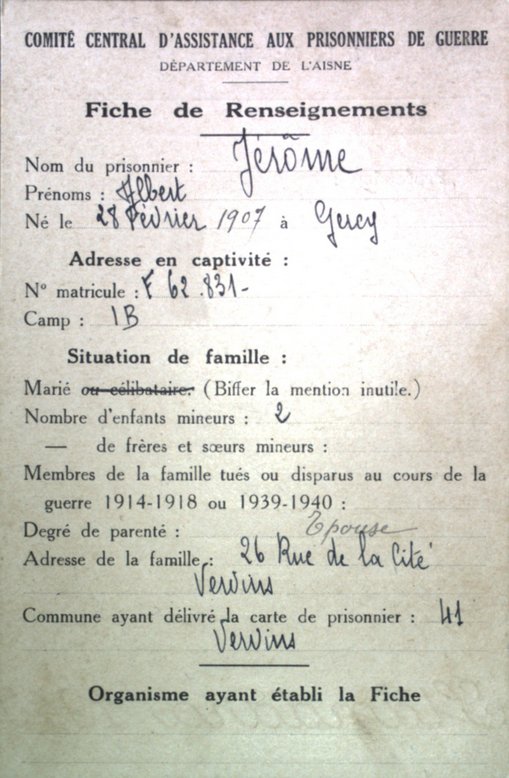 COMITÉ CENTRAL D'ASSISTANCE AUX PRISONNIERS DE GUERRE
DÉPARTEMENT DE L'AISNE
Fiche de Renseignements
Nom du prisonnier : Jérôme
Prénoms : Albert
Né le 28 Février 1907 à Gercy
Adresse en captivité :
N° matricule : F 62.831-
Camp : IB
Situation de famille :
Marié ou célibataire. (Biffer la mention inutile.)
Nombre d'enfants mineurs : 2
— de frères et sœurs mineurs :
Membres de la famille tués ou disparus au cours de la
guerre 1914-1918 ou 1939-1940 :
Degré de parenté : Epouse
Adresse de la famille : 26 Rue de la Cité
Vervins
Commune ayant délivré la carte de prisonnier : 41
Vervins
Organisme ayant établi la Fiche